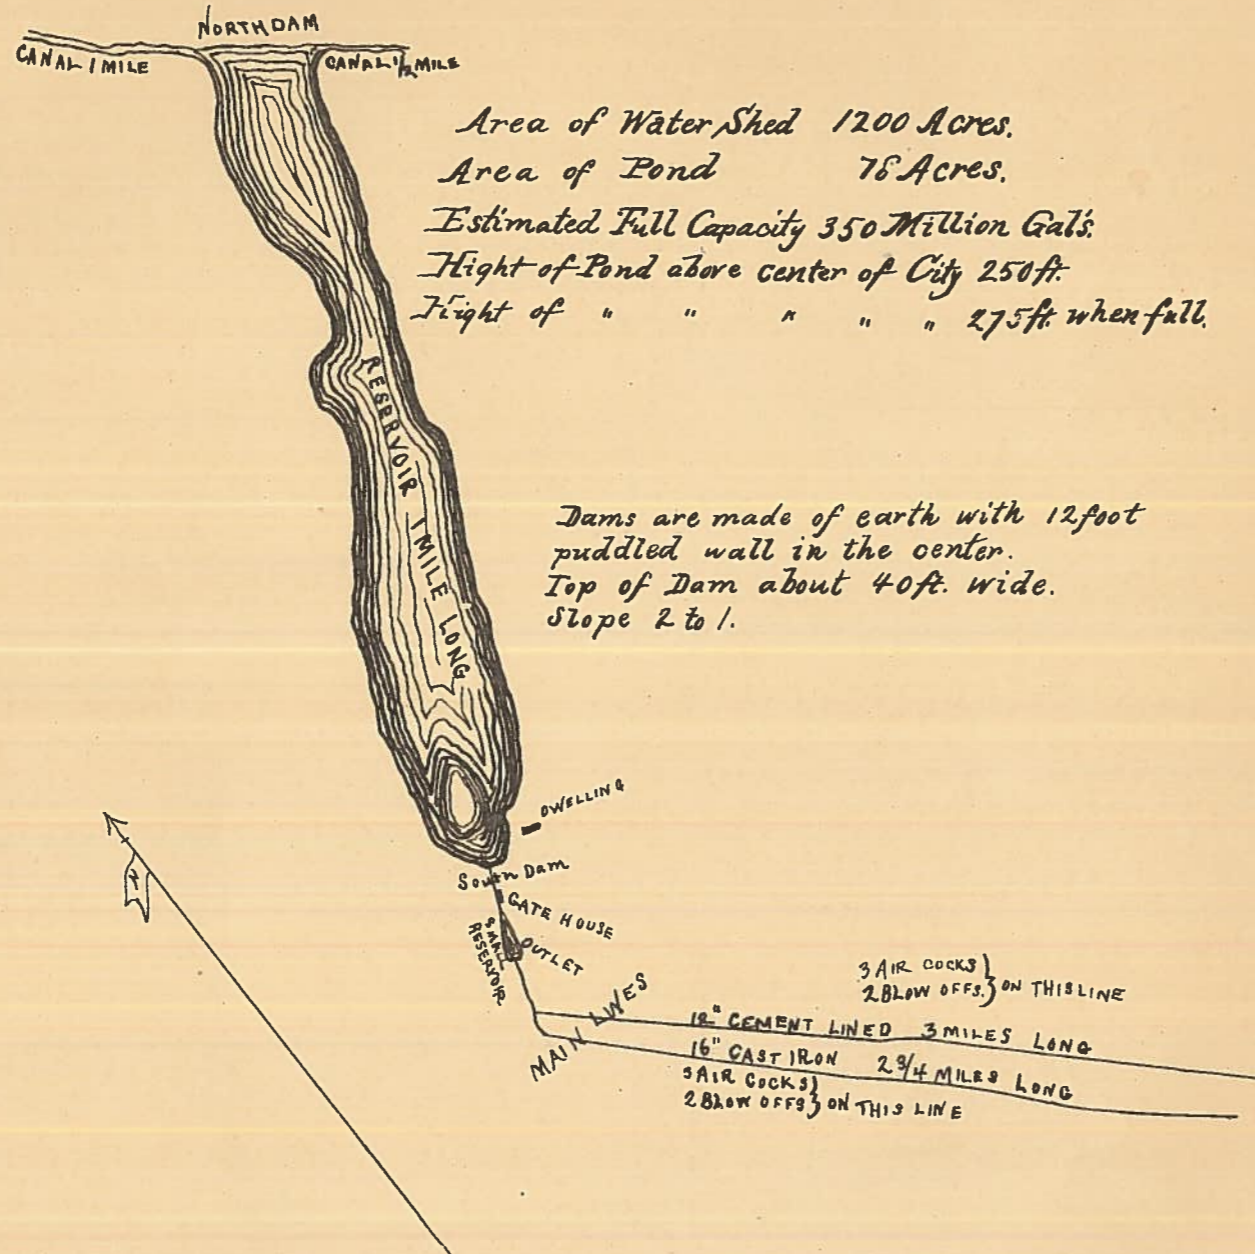 NORTH DAM
CANAL 1 MILE
CANAL 1/2 MILE
Area of Water Shed 1200 Acres.
Area of Pond Acres.
Estimated Full Capacity 350 Million Gal's.
Hight of Pond above center of City 250 ft.
Hight of " " " " " 275 ft. when full.
RESERVOIR 1 MILE LONG
Dams are made of earth with 12 foot
puddled wall in the center.
Top of Dam about 40 ft. wide.
Slope 2 to 1.
DWELLING
South Dam
GATE HOUSE
SMALL
RESERVOIR
OUTLET
N
MAIN LINES
3 AIR COCKS }
2 BLOW OFFS. } ON THIS LINE
CEMENT LINED 3 MILES LONG
16" CAST IRON 2 3/4 MILES LONG
3 AIR COCKS }
2 BLOW OFFS } ON THIS LINE